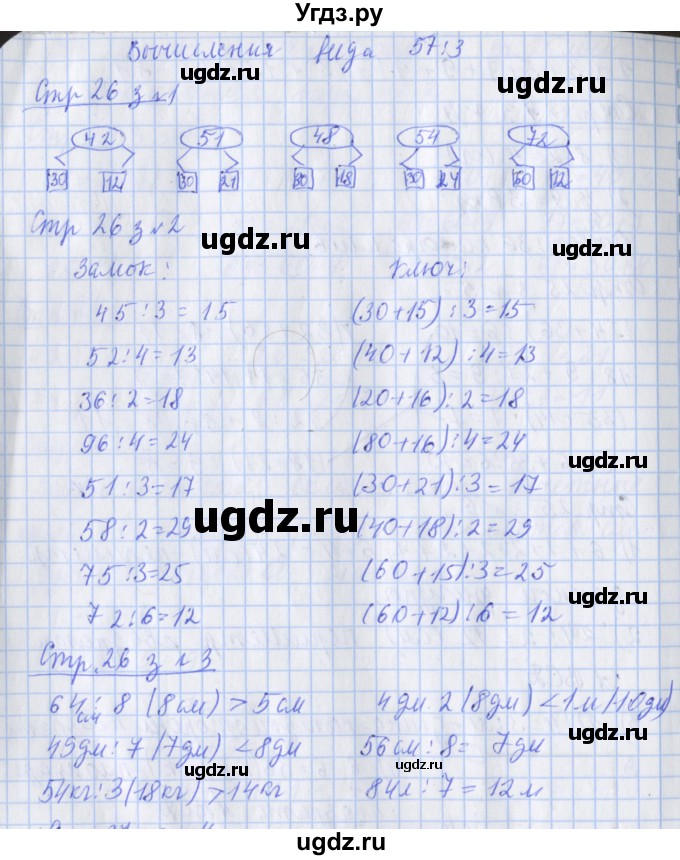 Угдз.ру
Вычисления вида 57:3
ugdz.ru ugdz.ru
Стр 26 з №1
42 51 48 54 72
30 12 30 21 30 18 30 24 60 12
Стр 26 з №2
ugdz.ru ugdz.ru
Замок: Ключ:
45:3=15 (30+15):3=15
ugdz.ru
52:4=13 (40+12):4=13
36:2=18 (20+16):2=18
96:4=24 (80+16):4=24
ugdz.ru
51:3=17 (30+21):3=17
ugdz.ru
58:2=29 (40+18):2=29
75:3=25 (60+15):3=25
ugdz.ru
72:6=12 (60+12):6=12
Стр. 26 з №3
64см:8 (8см) > 5см 4дм 2 (8дм) < 1м (10дм)
ugdz.ru
49дм:7 (7дм) < 8дм 56см:8= 7дм
ugdz.ru ugdz.ru
54кг:3 (18кг) > 14кг 84м:7=12м
ugdz.ru